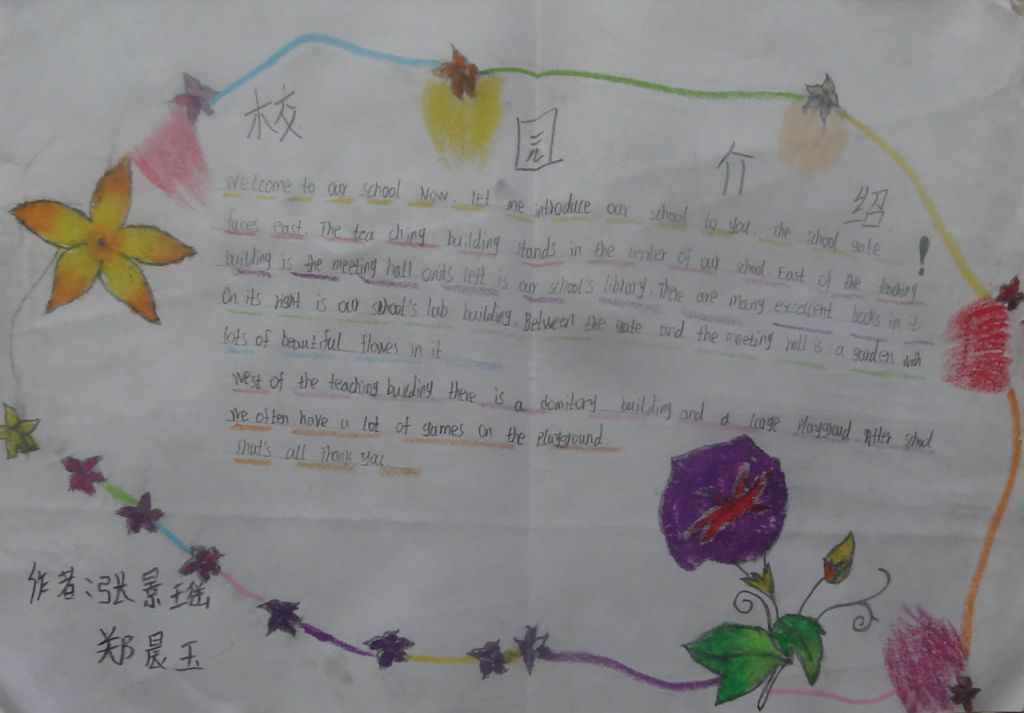 校园介绍!
Welcome to our school Now. let me introduce our school to you. The school gate
faces east. The tea ching building stands in the center of our school. East of the teaching
building is the meeting hall. Onits left is our school's library. There are many excellent books in it.
On its right is our school's lab building. Between the gate and the meeting hall is a garden with
lots of beautiful flowes in it
West of the teaching building there is a domitory building and a large playground After school
We often have a lot of games on the playground
That's all Thank you
作者:张景瑶
郑晨玉